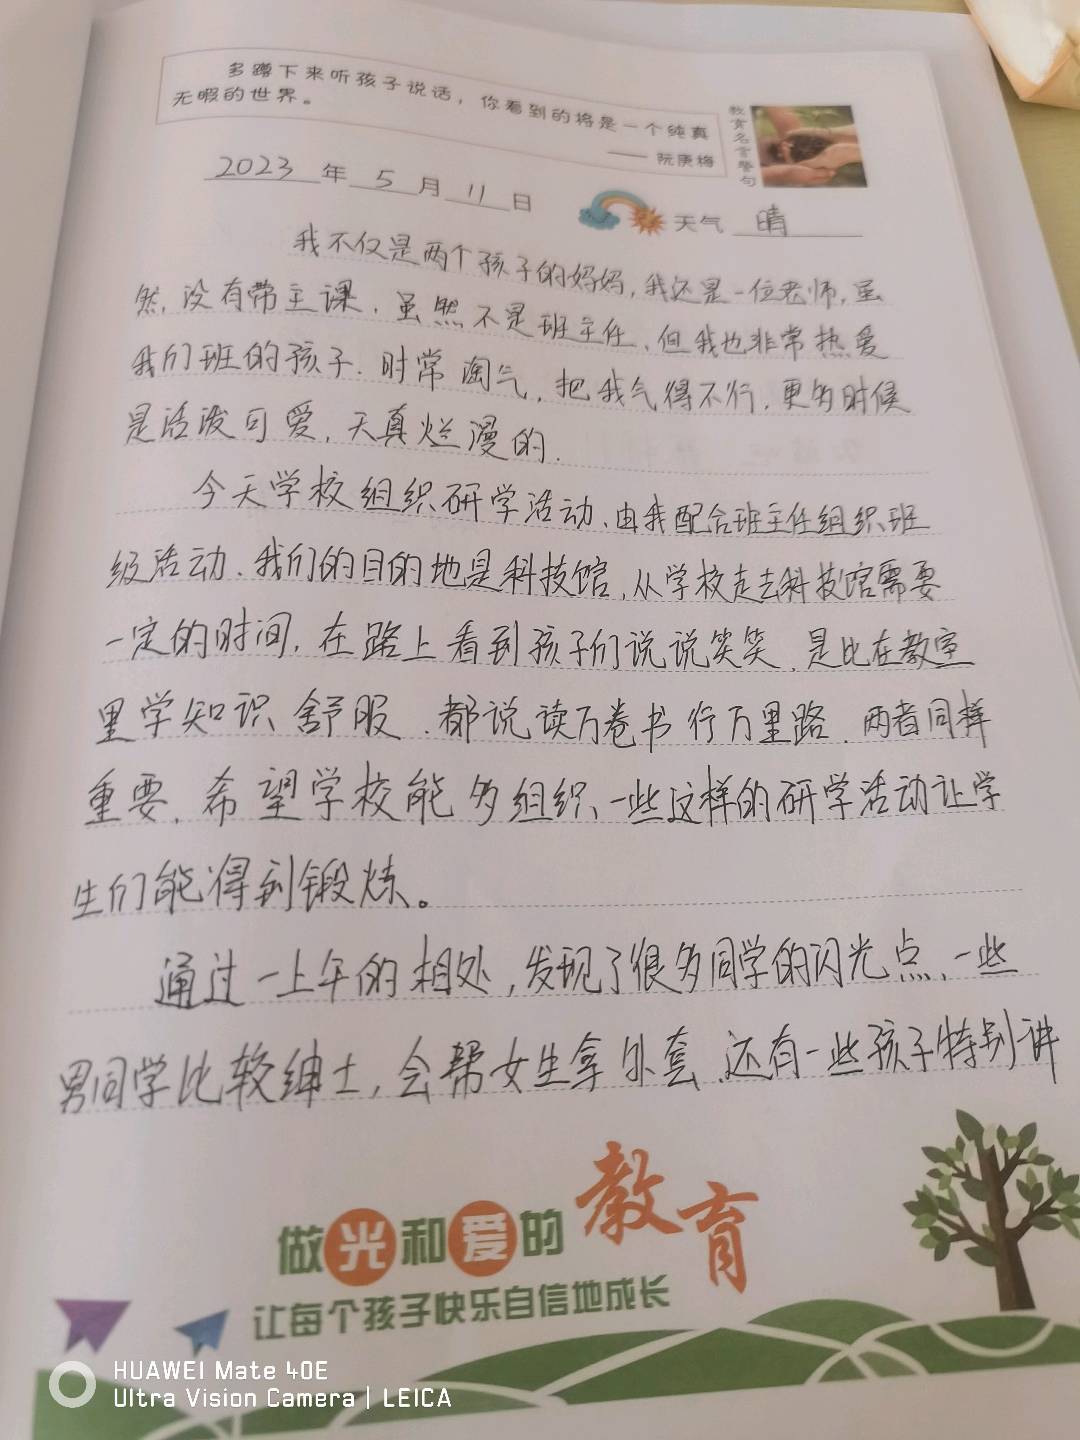 多蹲下来听孩子说话，你看到的将是一个纯真
无暇的世界。
—— 阮庚梅
教育名言警句
2023 年 5 月 11 日
天气 晴
我不仅是两个孩子的妈妈,我还是一位老师,虽
然,没有带主课.虽然不是班主任、但我也非常热爱
我们班的孩子.时常淘气，把我气得不行.更多时候
是活泼可爱,天真烂漫的.
今天学校组织研学活动、由我配合班主任组织班
级活动、我们的目的地是科技馆,从学校走去科技馆需要
一定的时间,在路上看到孩子们说说笑笑、是比在教室
里学知识舒服.都说读万卷书行万里路、两者同样
重要、希望学校能多组织、一些这样的研学活动让学
生们能得到锻炼。
通过一上午的相处,发现了很多同学的闪光点、一些
男同学比较绅士,会帮女生拿外套、还有一些孩子特别讲
做光和爱的教育
让每个孩子快乐自信地成长
HUAWEI Mate 40E
Ultra Vision Camera | LEICA